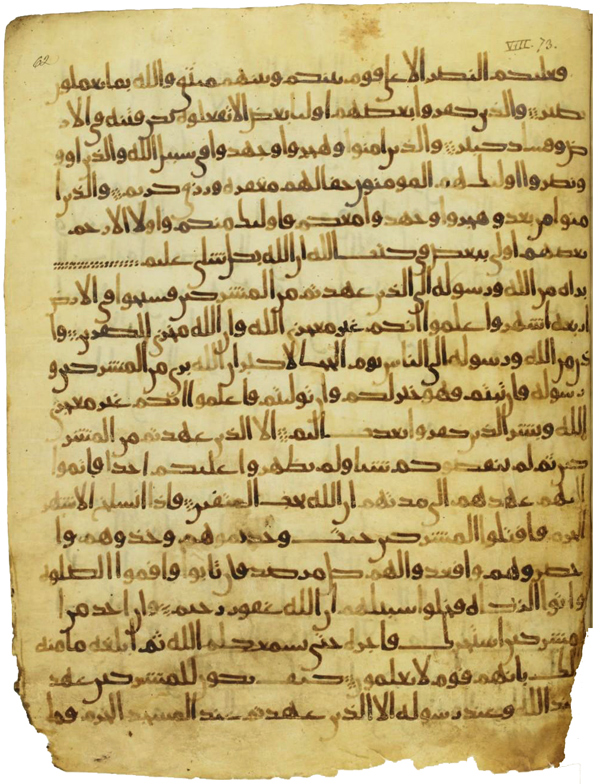 62 VIII-73.
فعليكم النصر الا على قوم بينكم وبينهم ميثق والله بما تعملون
بصير والذين كفروا بعضهم اوليا بعض الا تفعلوه تكن فتنة في الار
ض وفساد كبير والذين امنوا وهجروا وجهدوا في سبيل الله والذين اووا
ونصروا اولئك هم المومنون حقا لهم مغفرة ورزق كريم والذين ا
منوا من بعد وهجروا وجهدوا معكم فاولئك منكم واولا الارحم
بعضهم اولى ببعض في كتب الله ان الله بكل شاى عليم
براه من الله ورسوله الى الذين عهدتم من المشركين فسيحوا في الارض
اربعة اشهر واعلموا انكم غير معجزي الله وان الله مخزي الكفرين وا
ذن من الله ورسوله الى الناس يوم الحج الاكبر ان الله بري من المشركين و
رسوله فان تبتم فهو خير لكم وان توليتم فاعلموا انكم غير معجزي
الله وبشر الذين كفروا بعذب اليم الا الذين عهدتم من المشر
كين ثم لم ينقصوكم شيا ولم يظهروا عليكم احدا فاتموا
اليهم عهدهم الى مدتهم ان الله يحب المتقين فاذا انسلخ الاشهر
الحرم فاقتلوا المشركين حيث وجدتموهم وخذوهم وا
حصروهم واقعدوا لهم كل مرصد فان تابوا واقموا الصلوة
واتوا الزكاه فخلوا سبيلهم ان الله غفور رحيم وان احد من ا
لمشركين استجرك فاجره حتى يسمع كلم الله ثم ابلغه مامنه
ذلك بانهم قوم لا يعلمون كيف يكون للمشركين عهد
عند الله وعند رسوله الا الذين عهدتم عند المسجد الحرم فما